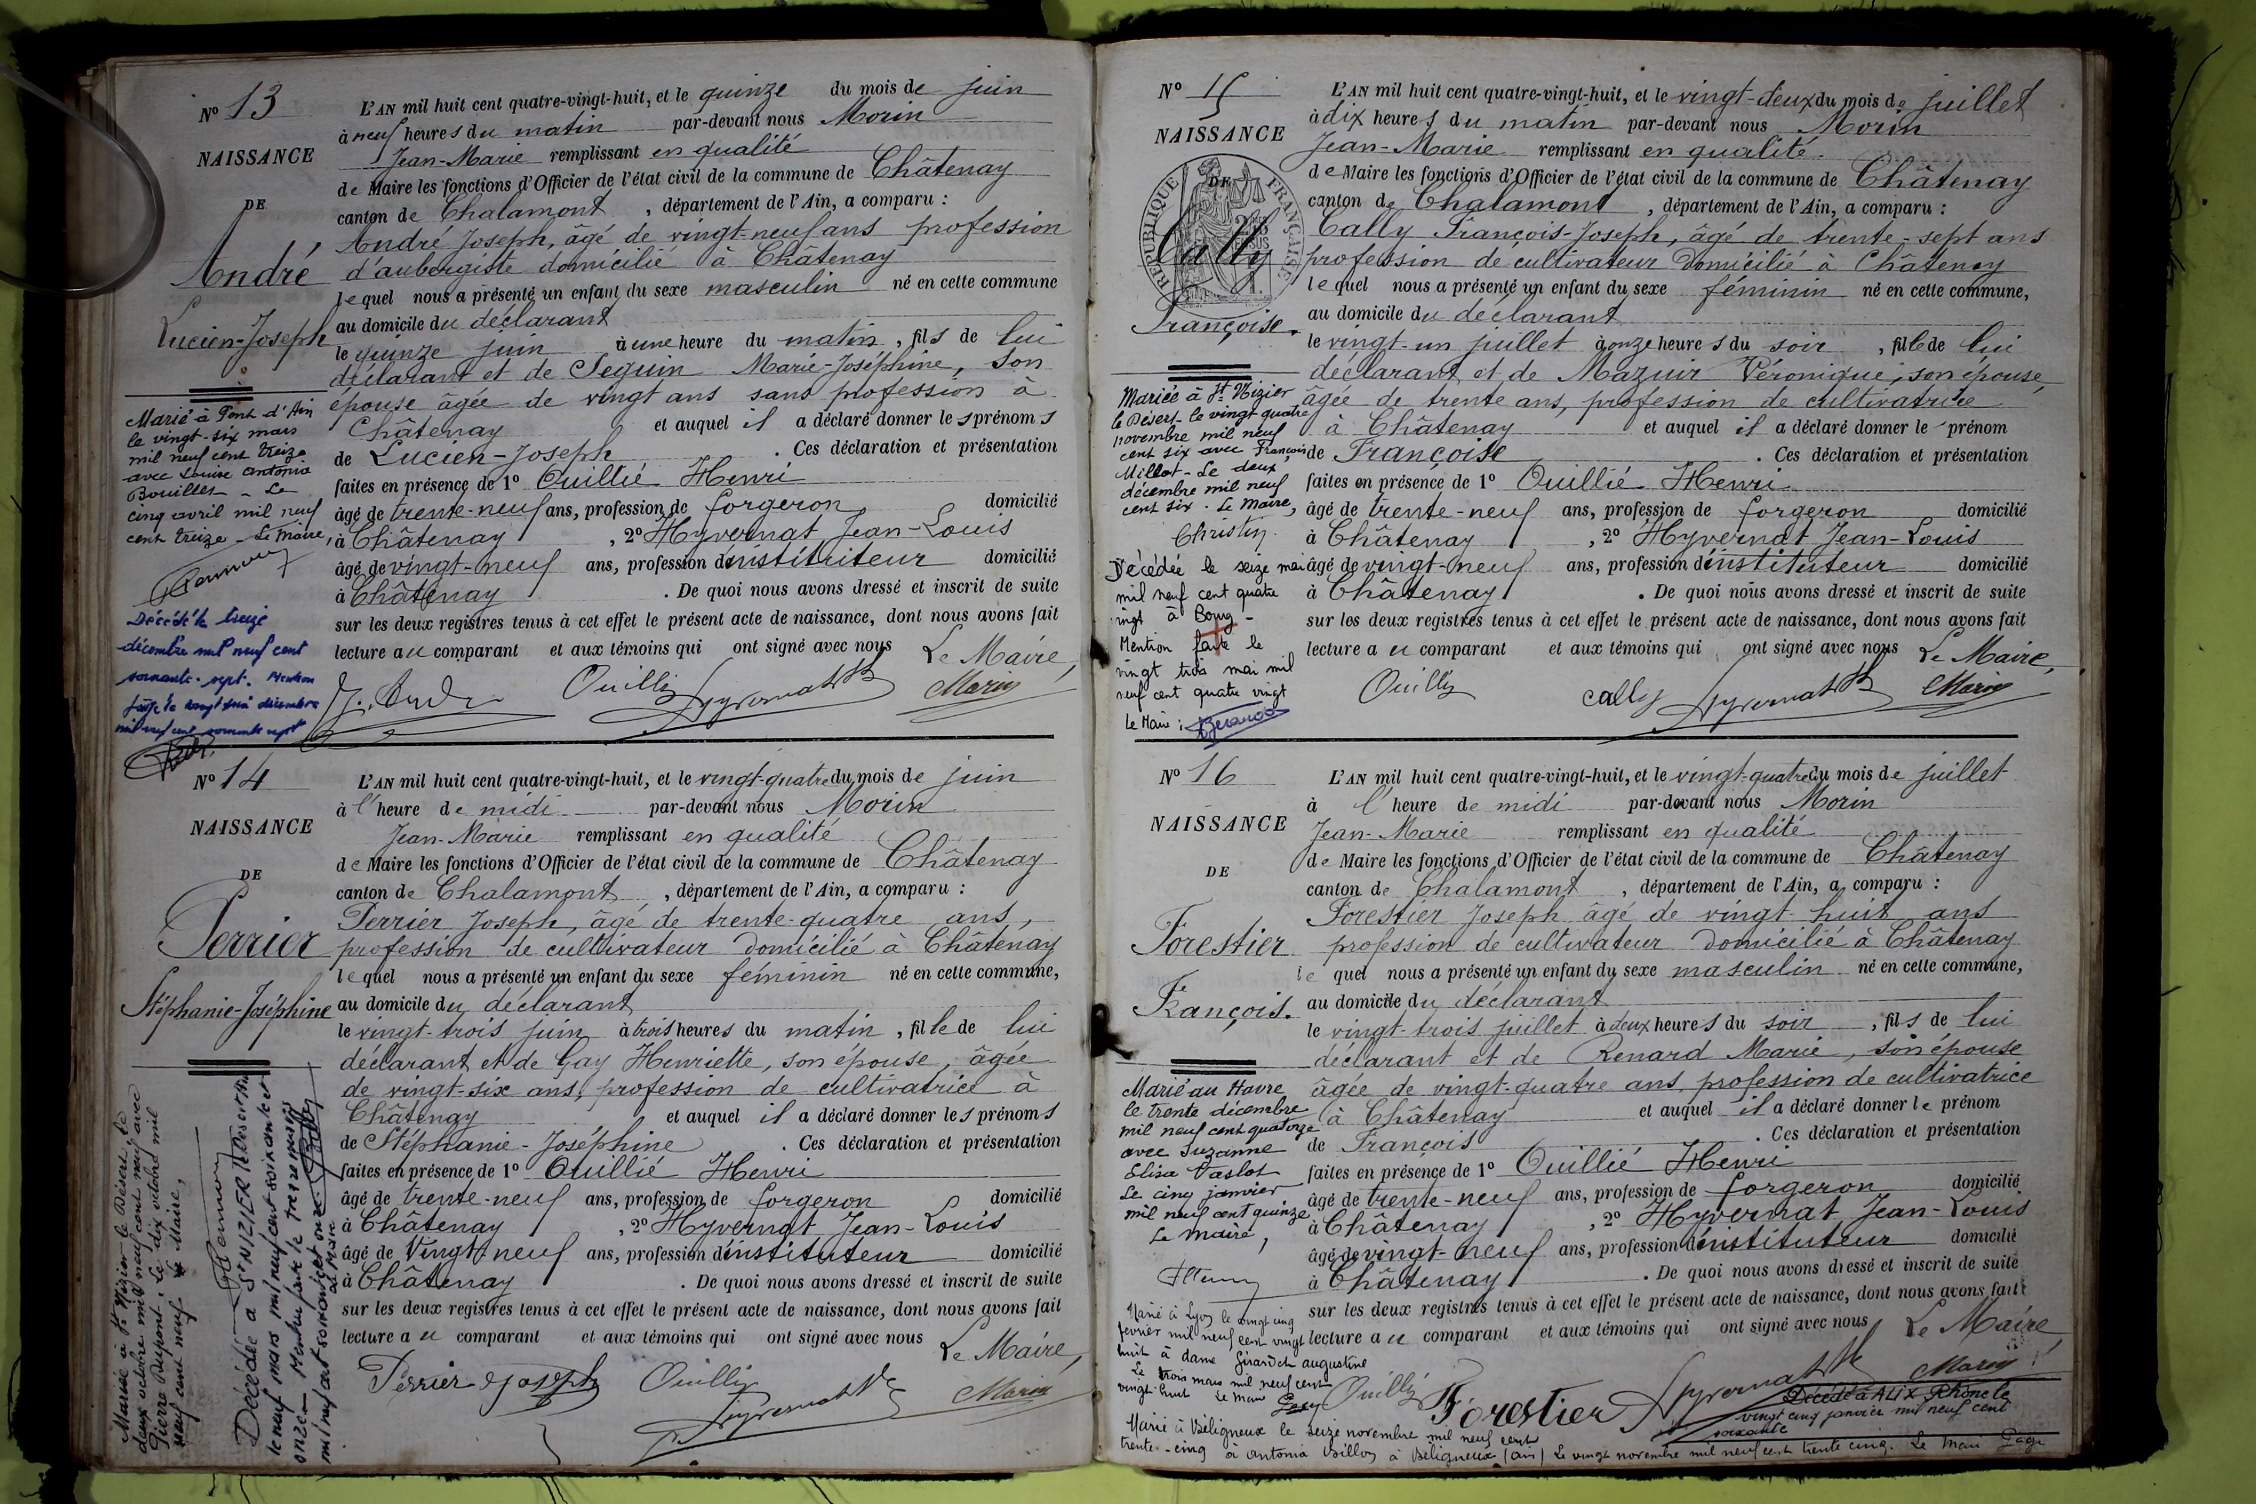 Nº 13
NAISSANCE
DE
André
Lucien-Joseph
Marié à Pont d'Ain
le vingt-six mars
mil neuf cent treize
avec Louise Antonia
Bouillet - Le
cinq avril mil neuf
cent treize - Le Maire,
Décédé le treize
décembre mil neuf cent
soixante-sept. Mention
faite le vingt décembre
mil neuf cent soixante sept
L'AN mil huit cent quatre-vingt-huit, et le quinze du mois de juin
à neuf heures du matin par-devant nous Morin
Jean-Marie remplissant en qualité
de Maire les fonctions d'Officier de l'état civil de la commune de Châtenay
canton de Chalamont, département de l'Ain, a comparu :
André Joseph, âgé de vingt-neuf ans profession
d'aubergiste domicilié à Châtenay
lequel nous a présenté un enfant du sexe masculin né en cette commune
au domicile du déclarant
le quinze juin à une heure du matin, fils de lui
déclarant et de Seguin Marie-Joséphine, son
épouse âgée de vingt ans sans profession à
Châtenay et auquel il a déclaré donner les prénoms
de Lucien-Joseph. Ces déclaration et présentation
faites en présence de 1º Ouillié Henri
âgé de trente-neuf ans, profession de forgeron domicilié
à Châtenay, 2º Hyvernat Jean-Louis
âgé de vingt-neuf ans, profession d'instituteur domicilié
à Châtenay. De quoi nous avons dressé et inscrit de suite
sur les deux registres tenus à cet effet le présent acte de naissance, dont nous avons fait
lecture au comparant et aux témoins qui ont signé avec nous
Le Maire,
J. André Ouillié Hyvernat Morin
Nº 14
NAISSANCE
DE
Perrier
Stéphanie-Joséphine
Mariée à St Nizier le Désert le
deux octobre mil neuf cent neuf avec
Pierre Dupont. Le dix octobre mil
neuf cent neuf Le Maire,
Décédée à St NIZIER le Désert
le neuf mars mil neuf cent soixante et
onze - Mention faite le treize mars
mil neuf cent soixante et onze
Le Maire
L'AN mil huit cent quatre-vingt-huit, et le vingt-quatre du mois de juin
à l'heure de midi par-devant nous Morin
Jean-Marie remplissant en qualité
de Maire les fonctions d'Officier de l'état civil de la commune de Châtenay
canton de Chalamont, département de l'Ain, a comparu :
Perrier Joseph, âgé de trente-quatre ans,
profession de cultivateur domicilié à Châtenay
lequel nous a présenté un enfant du sexe féminin né en cette commune,
au domicile du déclarant
le vingt-trois juin à trois heures du matin, fille de lui
déclarant et de Gay Henriette, son épouse, âgée
de vingt-six ans, profession de cultivatrice à
Châtenay et auquel il a déclaré donner les prénoms
de Stéphanie-Joséphine. Ces déclaration et présentation
faites en présence de 1º Ouillié Henri
âgé de trente-neuf ans, profession de forgeron domicilié
à Châtenay, 2º Hyvernat Jean-Louis
âgé de Vingt-neuf ans, profession d'instituteur domicilié
à Châtenay. De quoi nous avons dressé et inscrit de suite
sur les deux registres tenus à cet effet le présent acte de naissance, dont nous avons fait
lecture au comparant et aux témoins qui ont signé avec nous
Le Maire,
Perrier Joseph Ouillié Hyvernat Morin
Nº 15
NAISSANCE
DE
RÉPUBLIQUE FRANÇAISE
Cally
Françoise.
Mariée à St Nizier
le Désert - le vingt quatre
novembre mil neuf
cent six avec François
Millet - Le deux
décembre mil neuf
cent six. Le Maire,
Christin
Décédée le seize mai
mil neuf cent quatre
vingt à Bourg -
Mention faite le
vingt trois mai mil
neuf cent quatre vingt
Le Maire :
L'AN mil huit cent quatre-vingt-huit, et le vingt-deux du mois de juillet
à dix heures du matin par-devant nous Morin
Jean-Marie remplissant en qualité
de Maire les fonctions d'Officier de l'état civil de la commune de Châtenay
canton de Chalamont, département de l'Ain, a comparu :
Cally François-Joseph, âgé de trente-sept ans
profession de cultivateur domicilié à Châtenay
lequel nous a présenté un enfant du sexe féminin né en cette commune,
au domicile du déclarant
le vingt-un juillet à onze heures du soir, fille de lui
déclarant et de Mazuir Véronique, son épouse,
âgée de trente ans, profession de cultivatrice
à Châtenay et auquel il a déclaré donner le prénom
de Françoise. Ces déclaration et présentation
faites en présence de 1º Ouillié Henri
âgé de trente-neuf ans, profession de forgeron domicilié
à Châtenay, 2º Hyvernat Jean-Louis
âgé de vingt-neuf ans, profession d'instituteur domicilié
à Châtenay. De quoi nous avons dressé et inscrit de suite
sur les deux registres tenus à cet effet le présent acte de naissance, dont nous avons fait
lecture au comparant et aux témoins qui ont signé avec nous
Le Maire,
Ouillié Cally Hyvernat Morin
Nº 16
NAISSANCE
DE
Forestier
François.
Marié au Havre
le trente décembre
mil neuf cent quatorze
avec Suzanne
Elisa Vaslot
Le cinq janvier
mil neuf cent quinze
Le maire,
Marié à Lyon le vingt cinq
février mil neuf cent vingt
huit à dame Girardet augustine
Le trois mars mil neuf cent
vingt-huit Le Maire
L'AN mil huit cent quatre-vingt-huit, et le vingt-quatre du mois de juillet
à l'heure de midi par-devant nous Morin
Jean-Marie remplissant en qualité
de Maire les fonctions d'Officier de l'état civil de la commune de Châtenay
canton de Chalamont, département de l'Ain, a comparu :
Forestier Joseph âgé de vingt huit ans
profession de cultivateur domicilié à Châtenay
lequel nous a présenté un enfant du sexe masculin né en cette commune,
au domicile du déclarant
le vingt-trois juillet à deux heures du soir, fils de lui
déclarant et de Renard Marie, son épouse
âgée de vingt-quatre ans, profession de cultivatrice
à Châtenay et auquel il a déclaré donner le prénom
de François. Ces déclaration et présentation
faites en présence de 1º Ouillié Henri
âgé de trente-neuf ans, profession de forgeron domicilié
à Châtenay, 2º Hyvernat Jean-Louis
âgé de vingt-neuf ans, profession d'instituteur domicilié
à Châtenay. De quoi nous avons dressé et inscrit de suite
sur les deux registres tenus à cet effet le présent acte de naissance, dont nous avons fait
lecture au comparant et aux témoins qui ont signé avec nous
Le Maire,
Ouillié Forestier Hyvernat Morin
Décédé à ALIX Rhône le
vingt cinq janvier mil neuf cent
soixante
Marié à Béligneux le seize novembre mil neuf cent
trente-cinq à antonia Billon à Béligneux (ain) Le vingt novembre mil neuf cent trente cinq. Le Maire